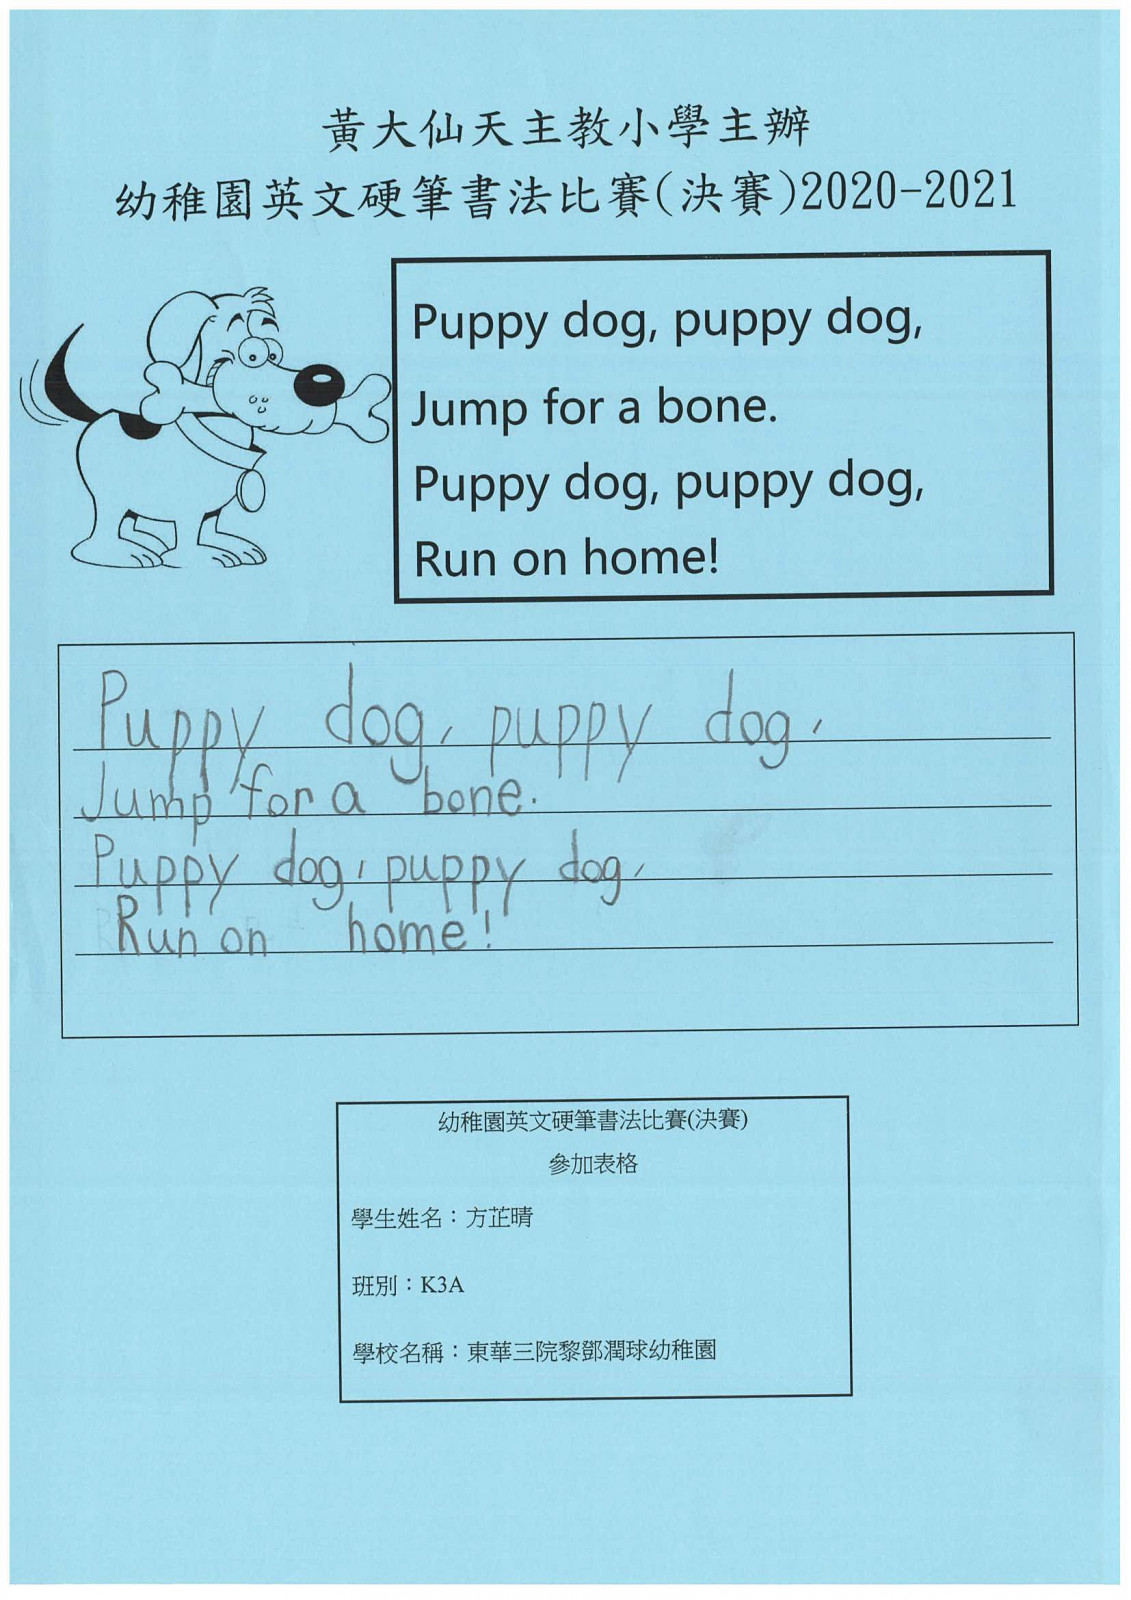 黃大仙天主教小學主辦
幼稚園英文硬筆書法比賽(決賽)2020-2021
Puppy dog, puppy dog,
Jump for a bone.
Puppy dog, puppy dog,
Run on home!
Puppy dog, puppy dog,
Jump for a bone.
Puppy dog, puppy dog,
Run on home!
幼稚園英文硬筆書法比賽(決賽)
參加表格
學生姓名：方芷晴
班別：K3A
學校名稱：東華三院黎鄧潤球幼稚園